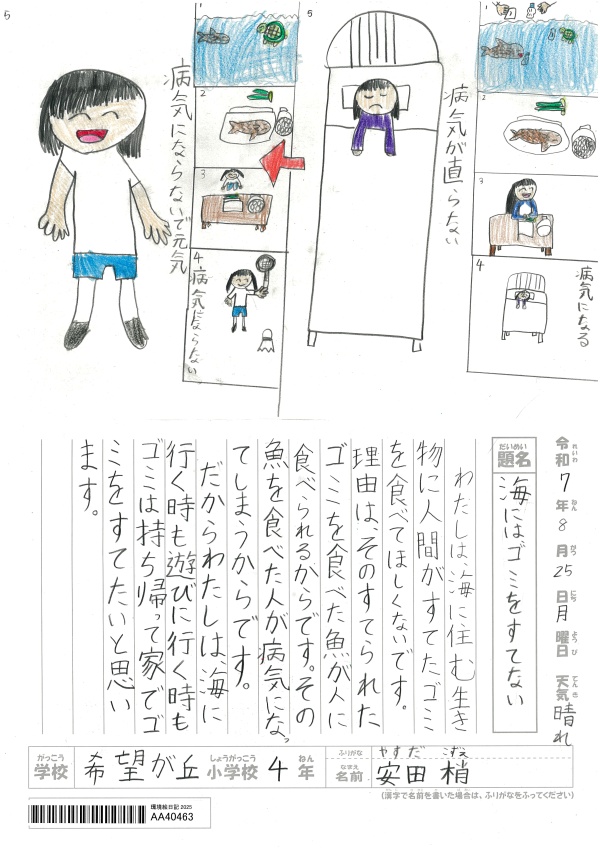 5
病気にならないで元気
2
3
4
病気にならない
5
病気が直らない
1
2
3
4
病気になる
令和7年8月25日月曜日 天気晴れ
れいわ ねん がつ にち ようび てんき
題名
だいめい
海にはゴミをすてない
わたしは、海に住む生き
物に人間がすてたゴミ
を食べてほしくないです。
理由は、そのすてられた
ゴミを食べた魚が人に
食べられるからです。その
魚を食べた人が病気になっ
てしまうからです。
だからわたしは、海に
行く時も遊びに行く時も
ゴミは持ち帰って家でゴ
ミをすてたいと思い
ます。
がっこう しょうがっこう ねん
学校 希望が丘 小学校 4 年
ふりがな やすだ こずえ
なまえ
名前 安田 梢
(漢字で名前を書いた場合は、ふりがなをふってください)
環境絵日記 2025
AA40463